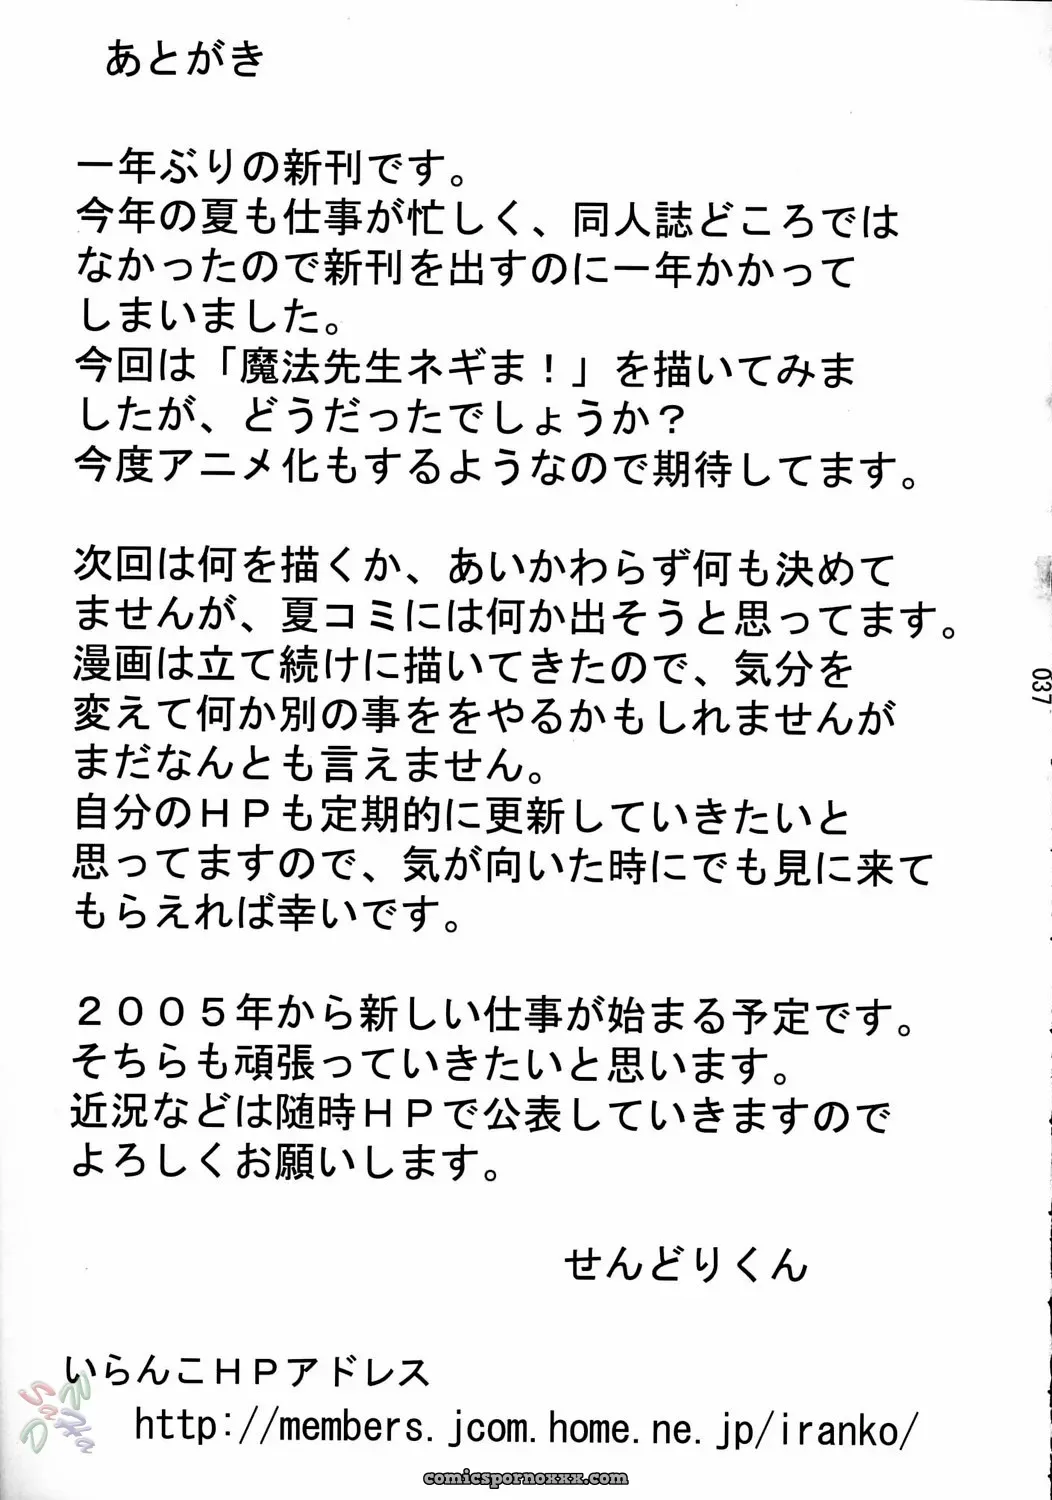 あとがき
一年ぶりの新刊です。
今年の夏も仕事が忙しく、同人誌どころでは
なかったので新刊を出すのに一年かかって
しまいました。
今回は「魔法先生ネギま！」を描いてみま
したが、どうだったでしょうか？
今度アニメ化もするようなので期待してます。
次回は何を描くか、あいかわらず何も決めて
ませんが、夏コミには何か出そうと思ってます。
漫画は立て続けに描いてきたので、気分を
変えて何か別の事ををやるかもしれませんが
まだなんとも言えません。
自分のＨＰも定期的に更新していきたいと
思ってますので、気が向いた時にでも見に来て
もらえれば幸いです。
２００５年から新しい仕事が始まる予定です。
そちらも頑張っていきたいと思います。
近況などは随時ＨＰで公表していきますので
よろしくお願いします。
せんどりくん
いらんこＨＰアドレス
http://members.jcom.home.ne.jp/iranko/
037
comicspornoxxx.com